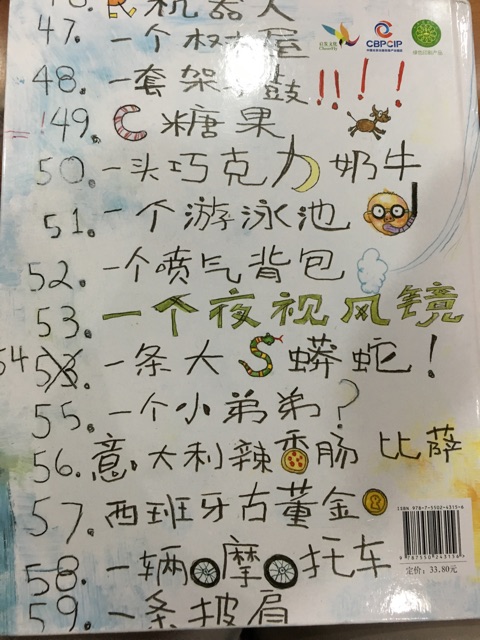 机器人
47. 一个树屋
48. 一套架子鼓!!!!
49. C糖果
50. 一头巧克力奶牛
51. 一个游泳池
52. 一个喷气背包
53. 一个夜视风镜
54 53. 一条大S蟒蛇!
55. 一个小弟弟?
56. 意大利辣香肠比萨
57. 西班牙古董金
58. 一辆摩托车
59. 一条披肩
CBPCIP
绿色印刷产品
ISBN 978-7-5502-4315-6
9 787550 243156
定价:33.80元